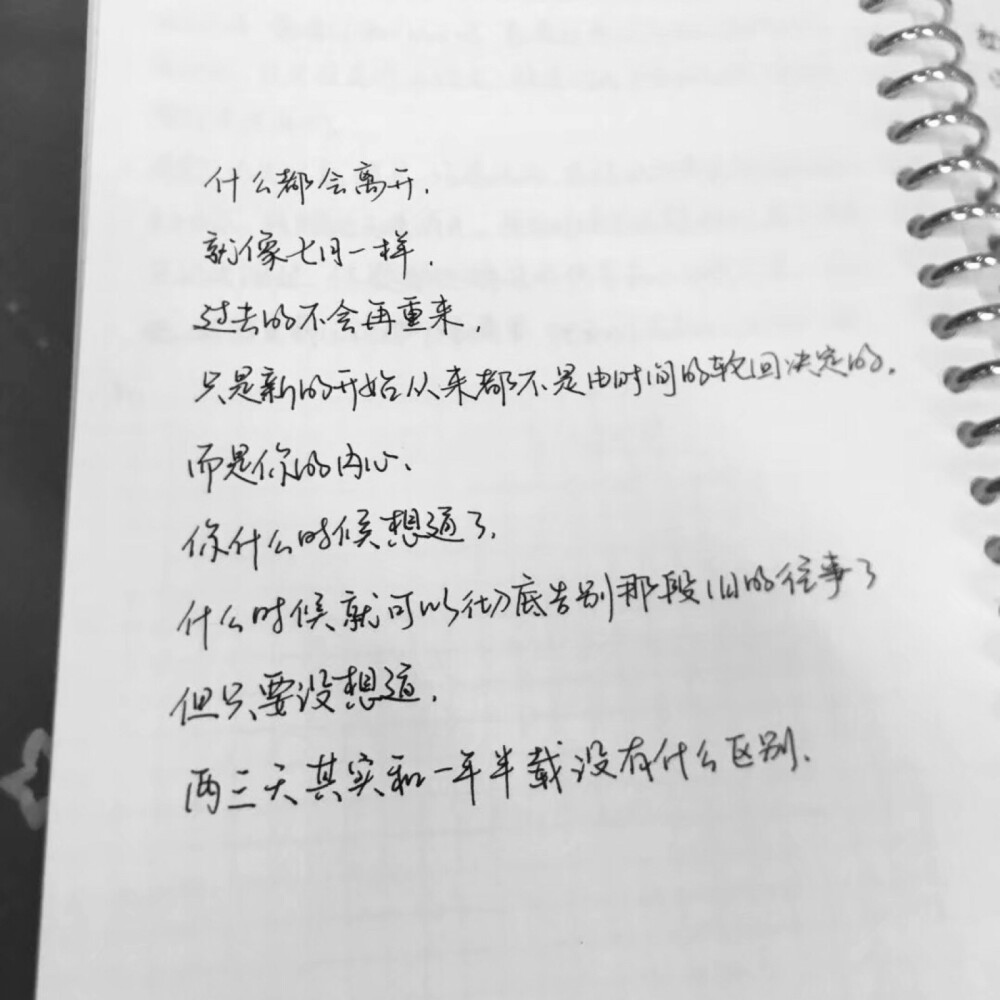 什么都会离开.
就像七月一样.
过去的不会再重来.
只是新的开始从来都不是由时间的轮回决定的.
而是你的内心.
你什么时候想通了.
什么时候就可以彻底告别那段旧的往事了
但只要没想通.
两三天其实和一年半载没有什么区别.